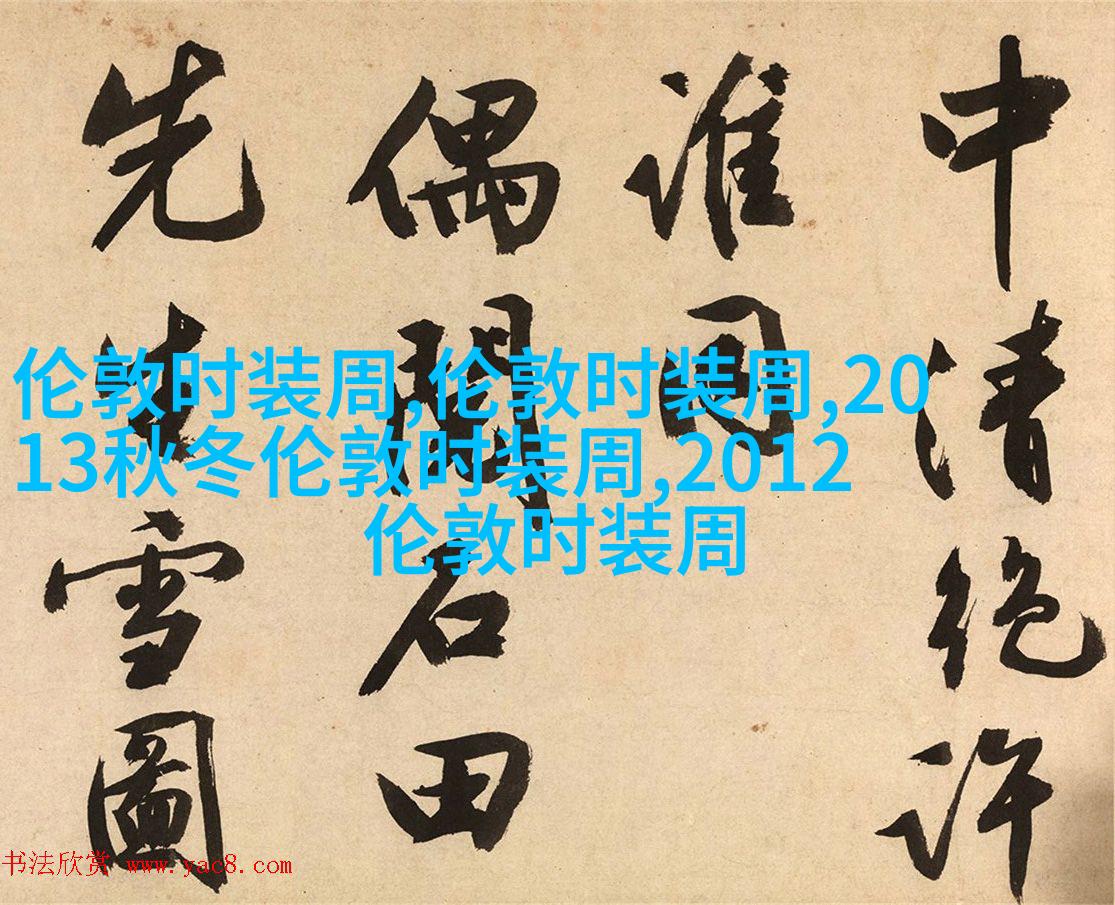 中清絕許
誰同
偶閱石田
先生雪圖
伦敦时装周,伦敦时装周,20
13秋冬伦敦时装周,2012
伦敦时装周
书法欣赏 www.yac8.com